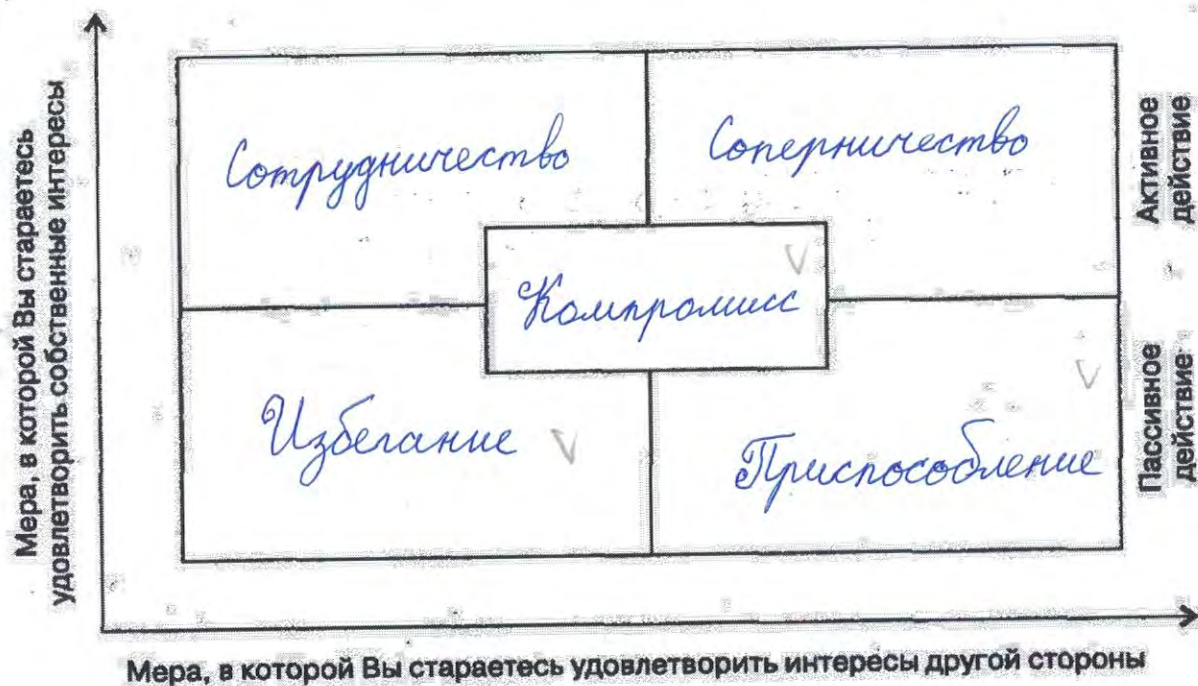 Мера, в которой Вы стараетесь
удовлетворить собственные интересы
Сотрудничество
Соперничество
Активное
действие
Компромисс
Избегание
Приспособление
Пассивное
действие
Мера, в которой Вы стараетесь удовлетворить интересы другой стороны